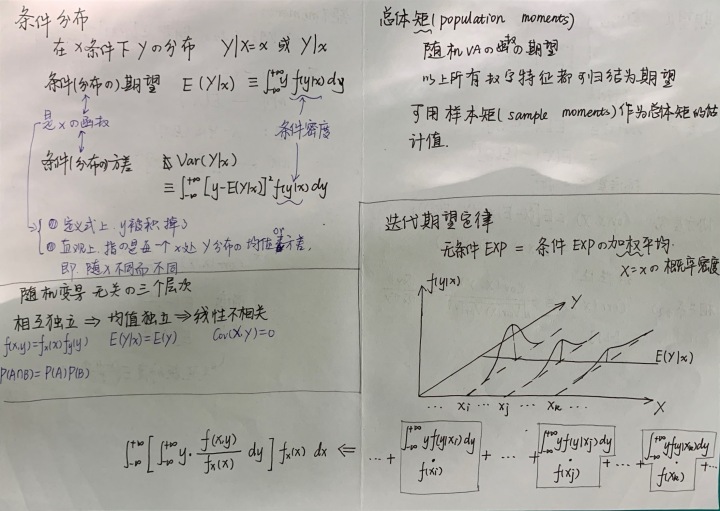 条件分布
在 X 条件下 Y の分布 Y|X=x 或 Y|x
条件(分布の)期望 E(Y|x) ≡ ∫_{-∞}^{+∞} y f(y|x) dy
是 x の函数
条件密度
条件(分布の)方差 Var(Y|x)
≡ ∫_{-∞}^{+∞} [y-E(Y|x)]² f(y|x) dy
① 定义式上, y被积掉了
② 直观上, 指の是每一个 x 处 Y 分布の均值 or 方差,
即 随 x 不同而不同
随机变量 无关の三个层次
相互独立 ⇒ 均值独立 ⇒ 线性不相关
f(x,y)=fx(x)fy(y) E(Y|x)=E(Y) Cov(X,Y)=0
P(A∩B)=P(A)P(B)
总体矩(population moments)
随机VAの函数の期望
以上所有数字特征都可归结为期望
可用样本矩(sample moments)作为总体矩的估
计值.
迭代期望定律
无条件 EXP = 条件 EXPの加权平均.
X=xの概率密度
f(y|x)
Y
E(Y|x)
... xi ... xj ... xk ... X
∫_{-∞}^{+∞} [∫_{-∞}^{+∞} y· f(x,y)/fx(x) dy] fx(x) dx ⇐ ... + ∫_{-∞}^{+∞} y f(y|xi) dy · f(xi) + ... + ∫_{-∞}^{+∞} y f(y|xj) dy · f(xj) + ... + ∫_{-∞}^{+∞} y f(y|xk) dy · f(xk) + ...